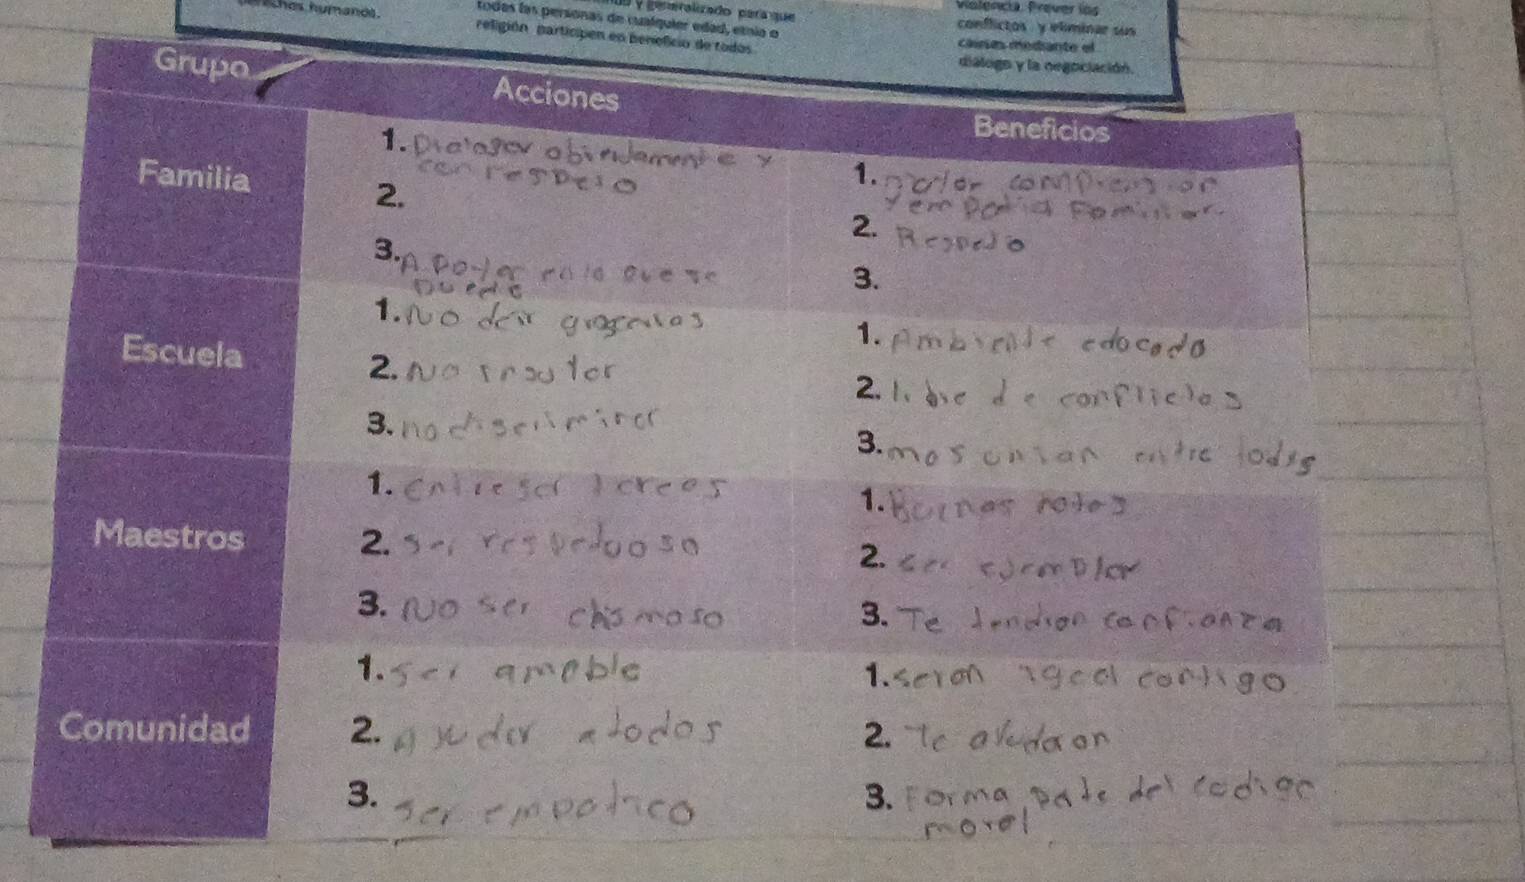 derechos humanos.
y generalizado para que
todas las personas de cualquier edad, etnia o
religión participen en beneficio de todos.
violencia. Prever los
conflictos y eliminar sus
causas mediante el
diálogo y la negociación.
Grupo
Acciones
Beneficios
Familia
1. Dialogar abiertamente y
con respeto
2.
3. Apoyar en lo que se
puede
1. mejor comprension
y empatia Familiar
2. Respeto
3.
Escuela
1. No decir groserias
2. No insultar
3. no discriminar
1. Ambiente edocado
2. libre de conflictos
3. mas union entre todos
Maestros
1. Entregar tereas
2. ser respetuoso
3. No ser chismoso
1. Buenas notas
2. ser ejemplar
3. Te tendran confianza
Comunidad
1. ser amable
2. Ayudar a todos
3. ser empatico
1. seran igual contigo
2. Te ayudaan
3. Forma pate del codigo
moral